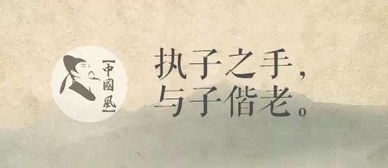 【中國風】
执子之手，
与子偕老。